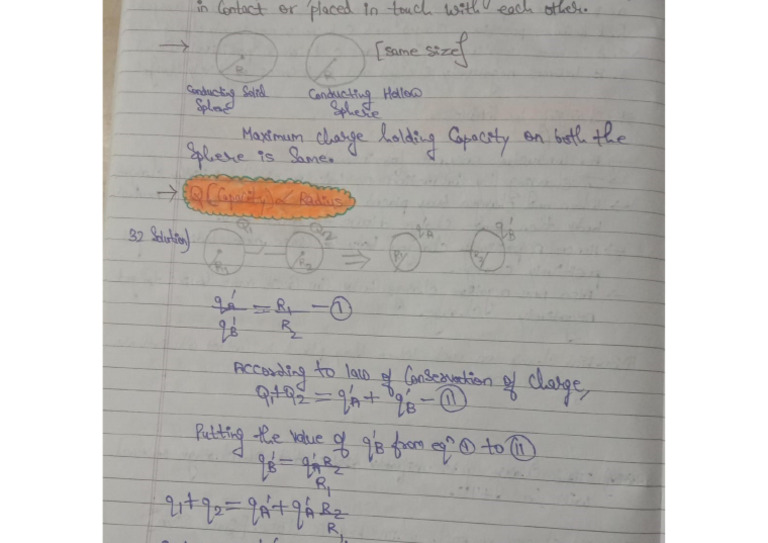 in Contact or placed in touch with each other.
→ R R [same size]
Conducting Solid Sphere
Conducting Hollow Sphere
Maximum charge holding Capacity on both the
Sphere is Same.
→ Q (Capacity) ∝ Radius
32 Solution) Q1 R1 R2 ⇒ R1 q'A q'B
q'A/q'B = R1/R2 — ①
According to law of Conservation of charge,
Q1+Q2 = q'A + q'B — ⑪
Putting the value of q'B from eqn ① to ⑪
q'B = q'A R2/R1
q1+q2 = q'A + q'A R2/R1